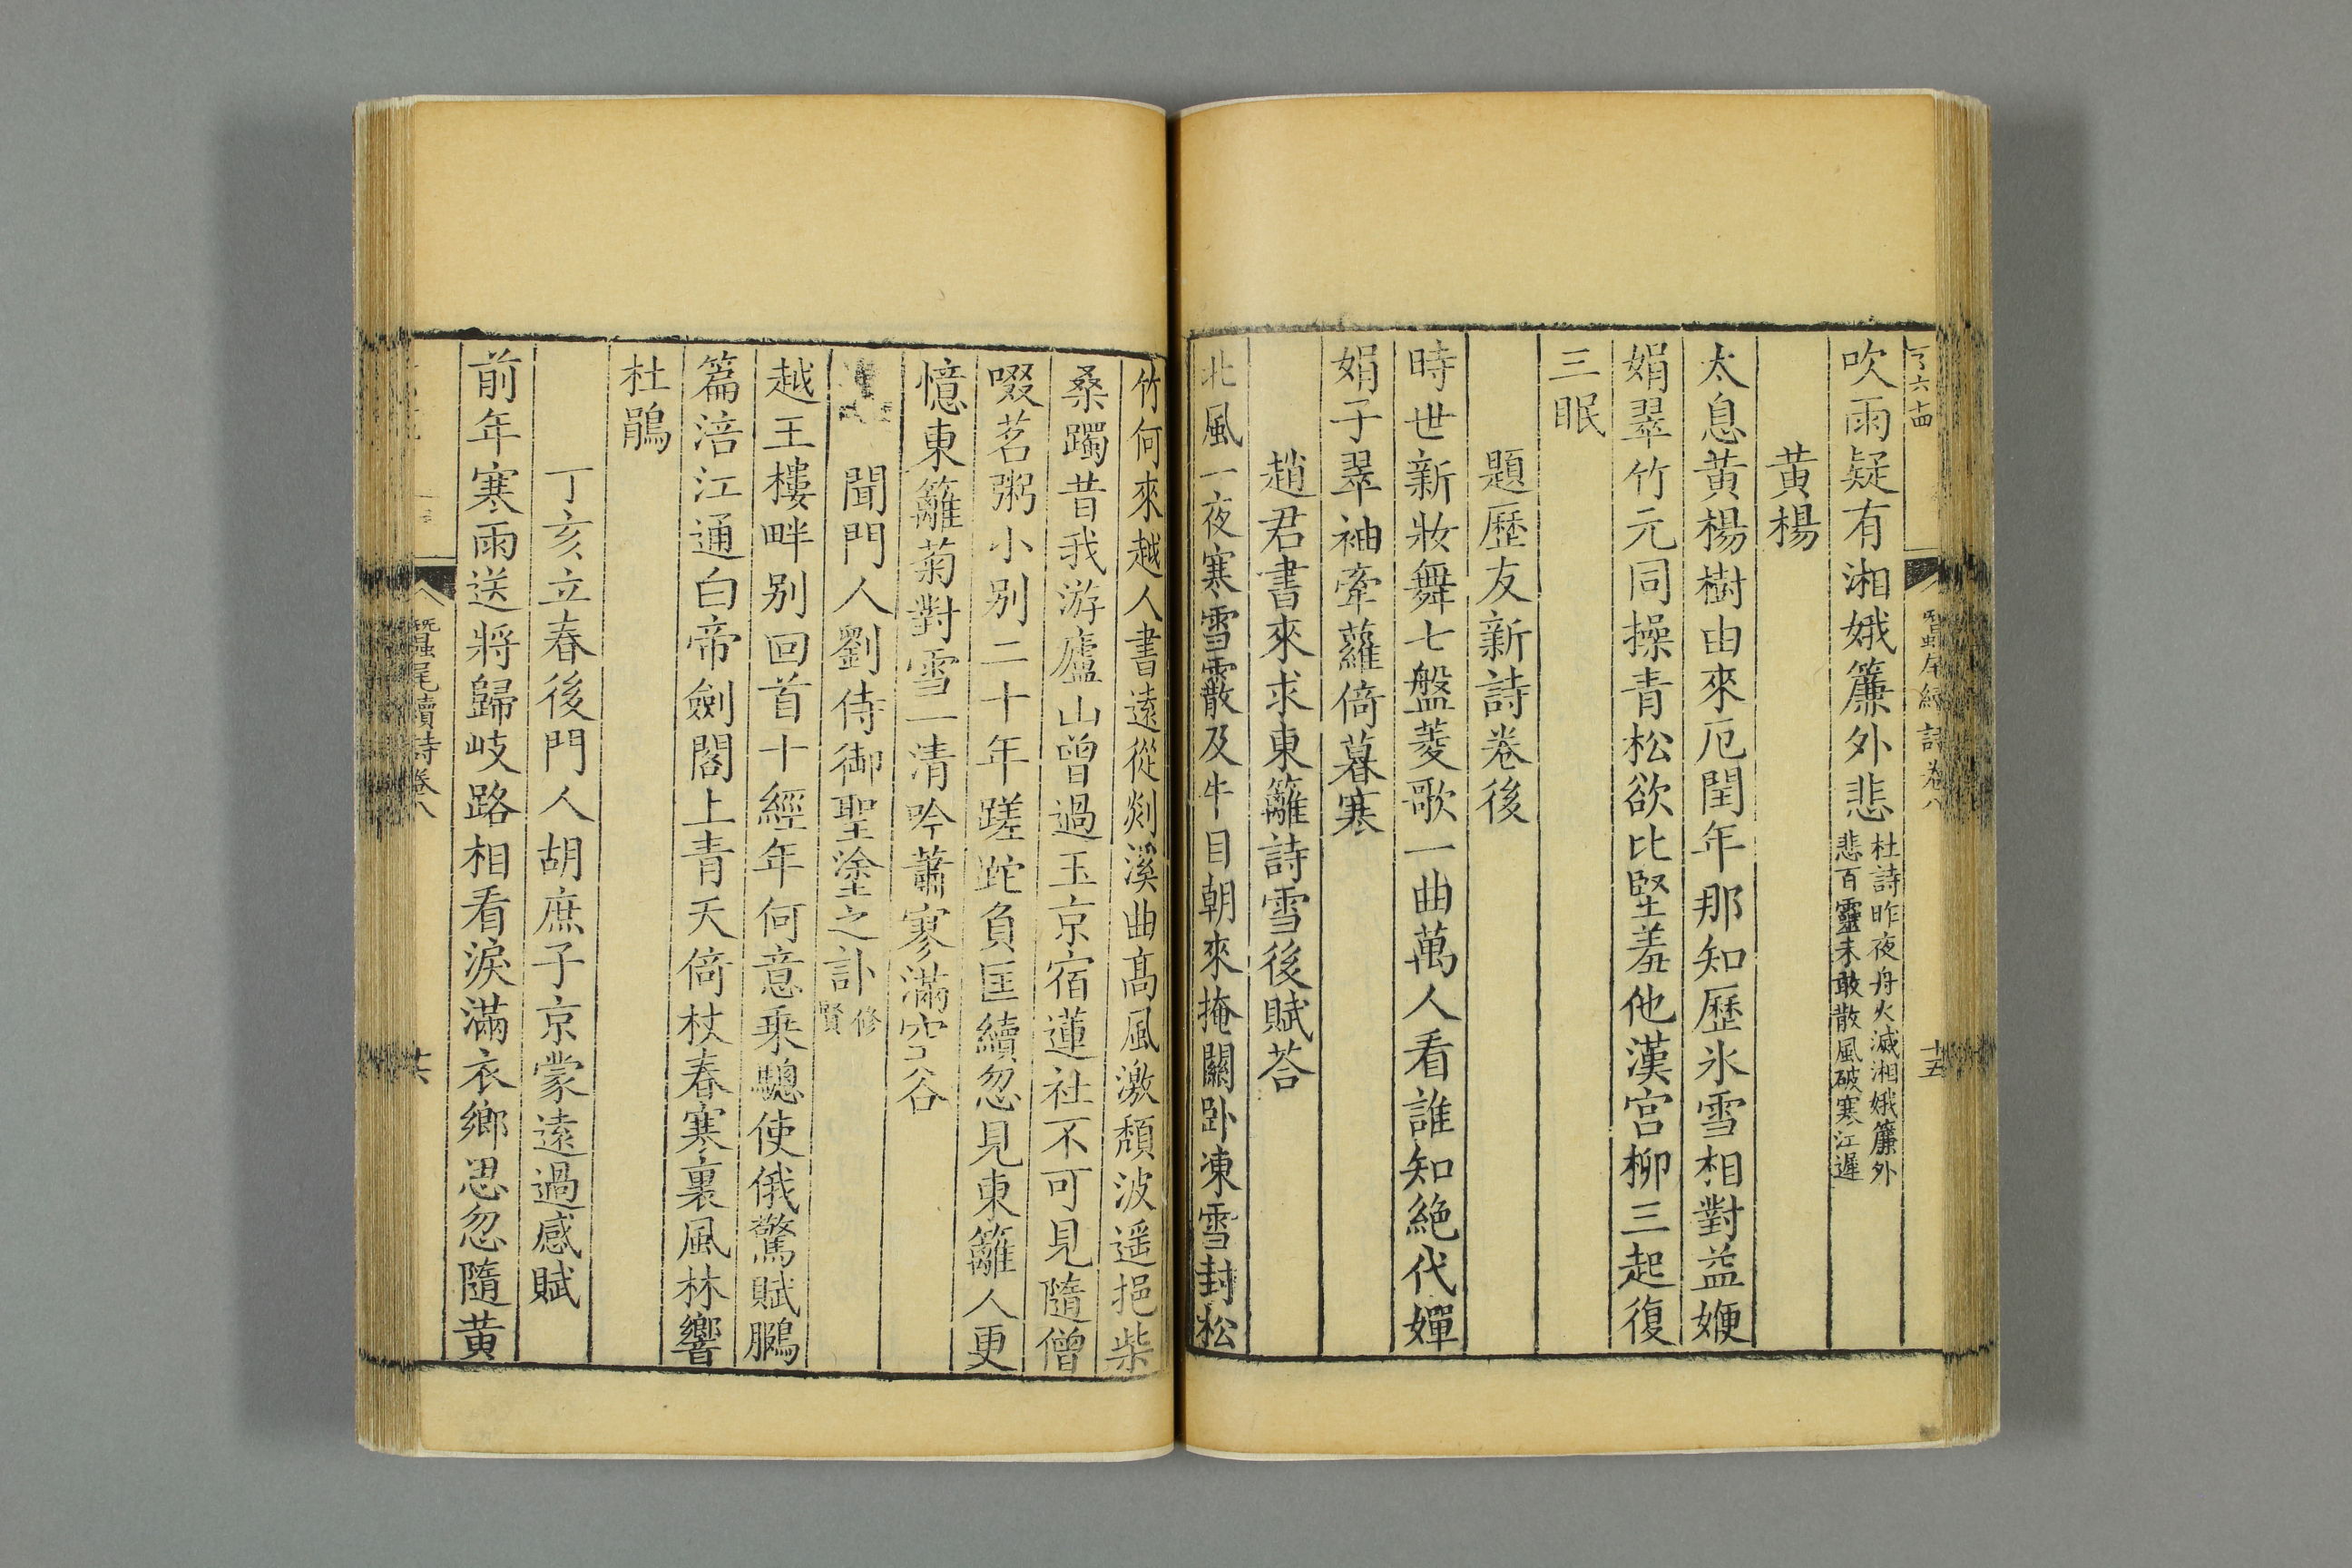 吹雨疑有湘娥簾外悲杜詩昨夜舟火滅湘娥簾外
悲百靈未敢散風破寒江遲
黃楊
太息黃楊樹由來厄閏年那知歷氷雪相對益㛹
娟翠竹元同操青松欲比堅羞他漢宮柳三起復
三眠
題歷友新詩卷後
時世新妝舞七盤菱歌一曲萬人看誰知絕代嬋
娟子翠袖牽蘿倚暮寒
趙君書來求東籬詩雪後賦荅
北風一夜寒雪霰及牛目朝來掩關卧凍雪封松
竹何來越人書遠從剡溪曲高風激頹波遥挹柴
桑躅昔我游廬山曾過玉京宿蓮社不可見隨僧
啜茗粥小别二十年蹉跎負匡續忽見東籬人更
憶東籬菊對雪一清吟蕭寥滿空谷
聞門人劉侍御聖塗之訃修
賢
越王樓畔别回首十經年何意乘驄使俄驚賦鵩
篇涪江通白帝劍閣上青天倚杖春寒裏風林響
杜鵑
丁亥立春後門人胡庶子京蒙遠過感賦
前年寒雨送將歸岐路相看淚滿衣鄉思忽隨黃
蠶尾續詩卷八
十六